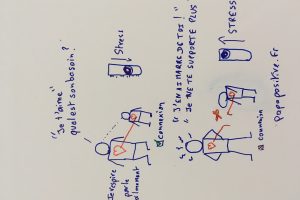 "Je t'aime"
quel est son besoin?
Stress
Je respire
par le
connexion
"J'EN AI MARRE DE TOI!"
"JE NE TE SUPPORTE PLUS
STRESS
connexion
papapositive.fr